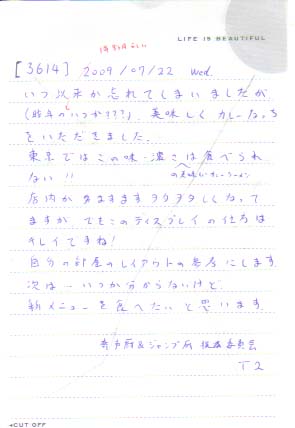 LIFE IS BEAUTIFUL
[3614] 2009/07/22 wed.
いつ以来か忘れてしまいましたが
(昨年のいつか???)、美味しくカレーなっちを
いただきました。
東京ではこの味・濃さは食べられ
ない!!
の美味しいカレーラーメン
店内がますますヲタヲタしくなって
ますが、でもこのディスプレイの仕方は
キレイですね!
自分の部屋のレイアウトの参考にします。
次は…いつか分からないけど、
新メニューを食べたいと思います。
&ジャンプ
委員会
T2
◂CUT OFF